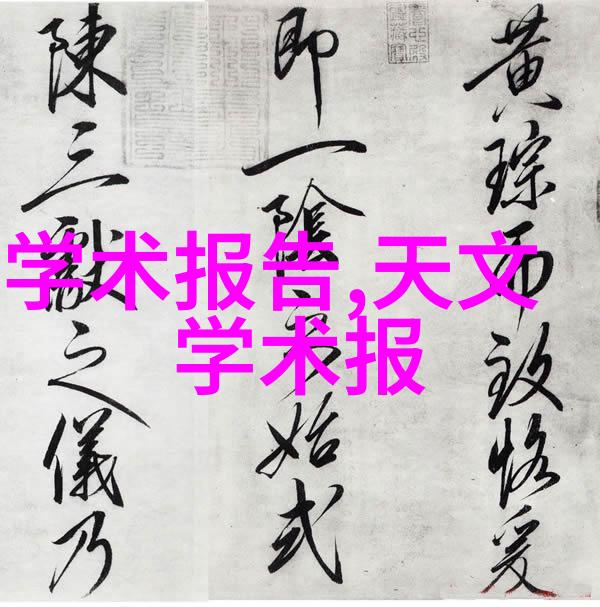 黄琮而致恪爰
即一陰始式
陳三獻之儀乃
学术报告,天文
学术报